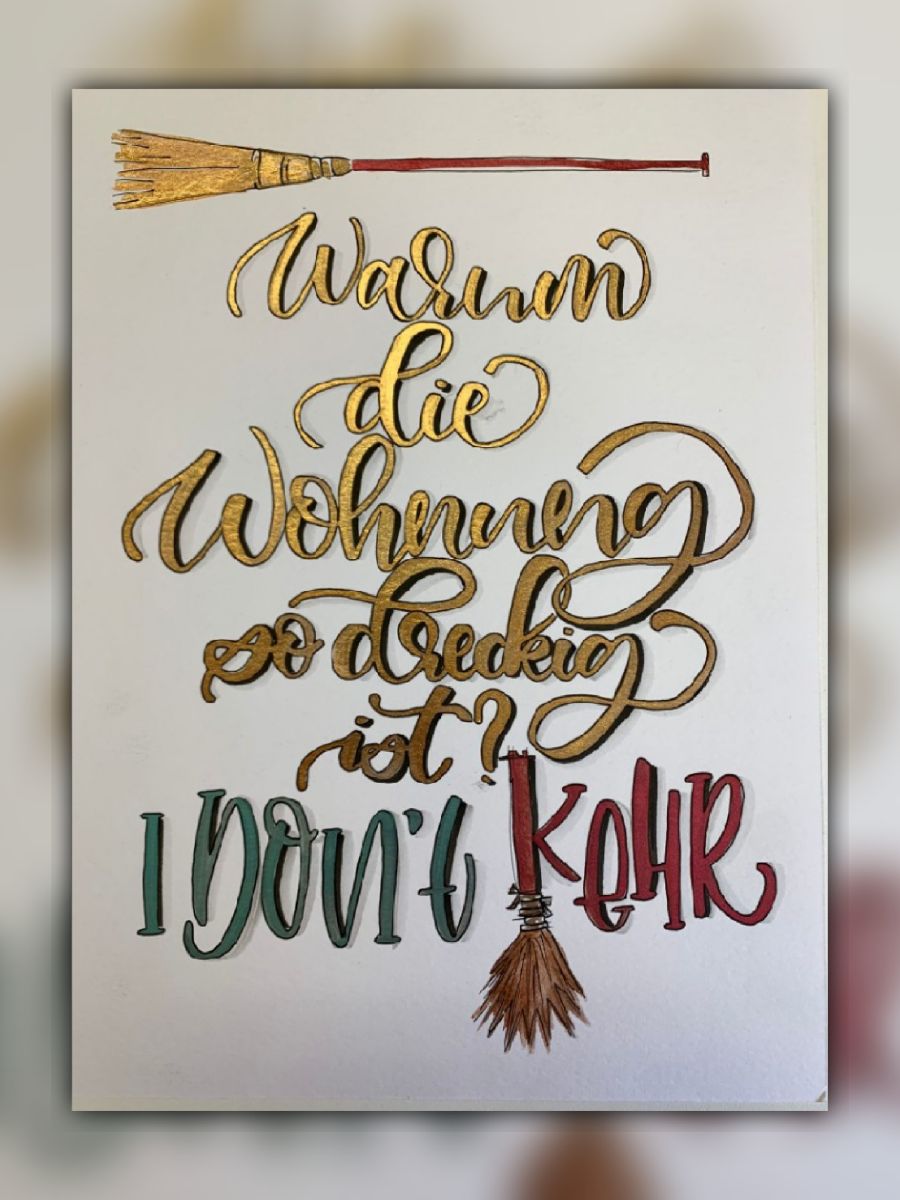 Warum
die
Wohnung
so dreckig
ist?
I DON'T KEHR